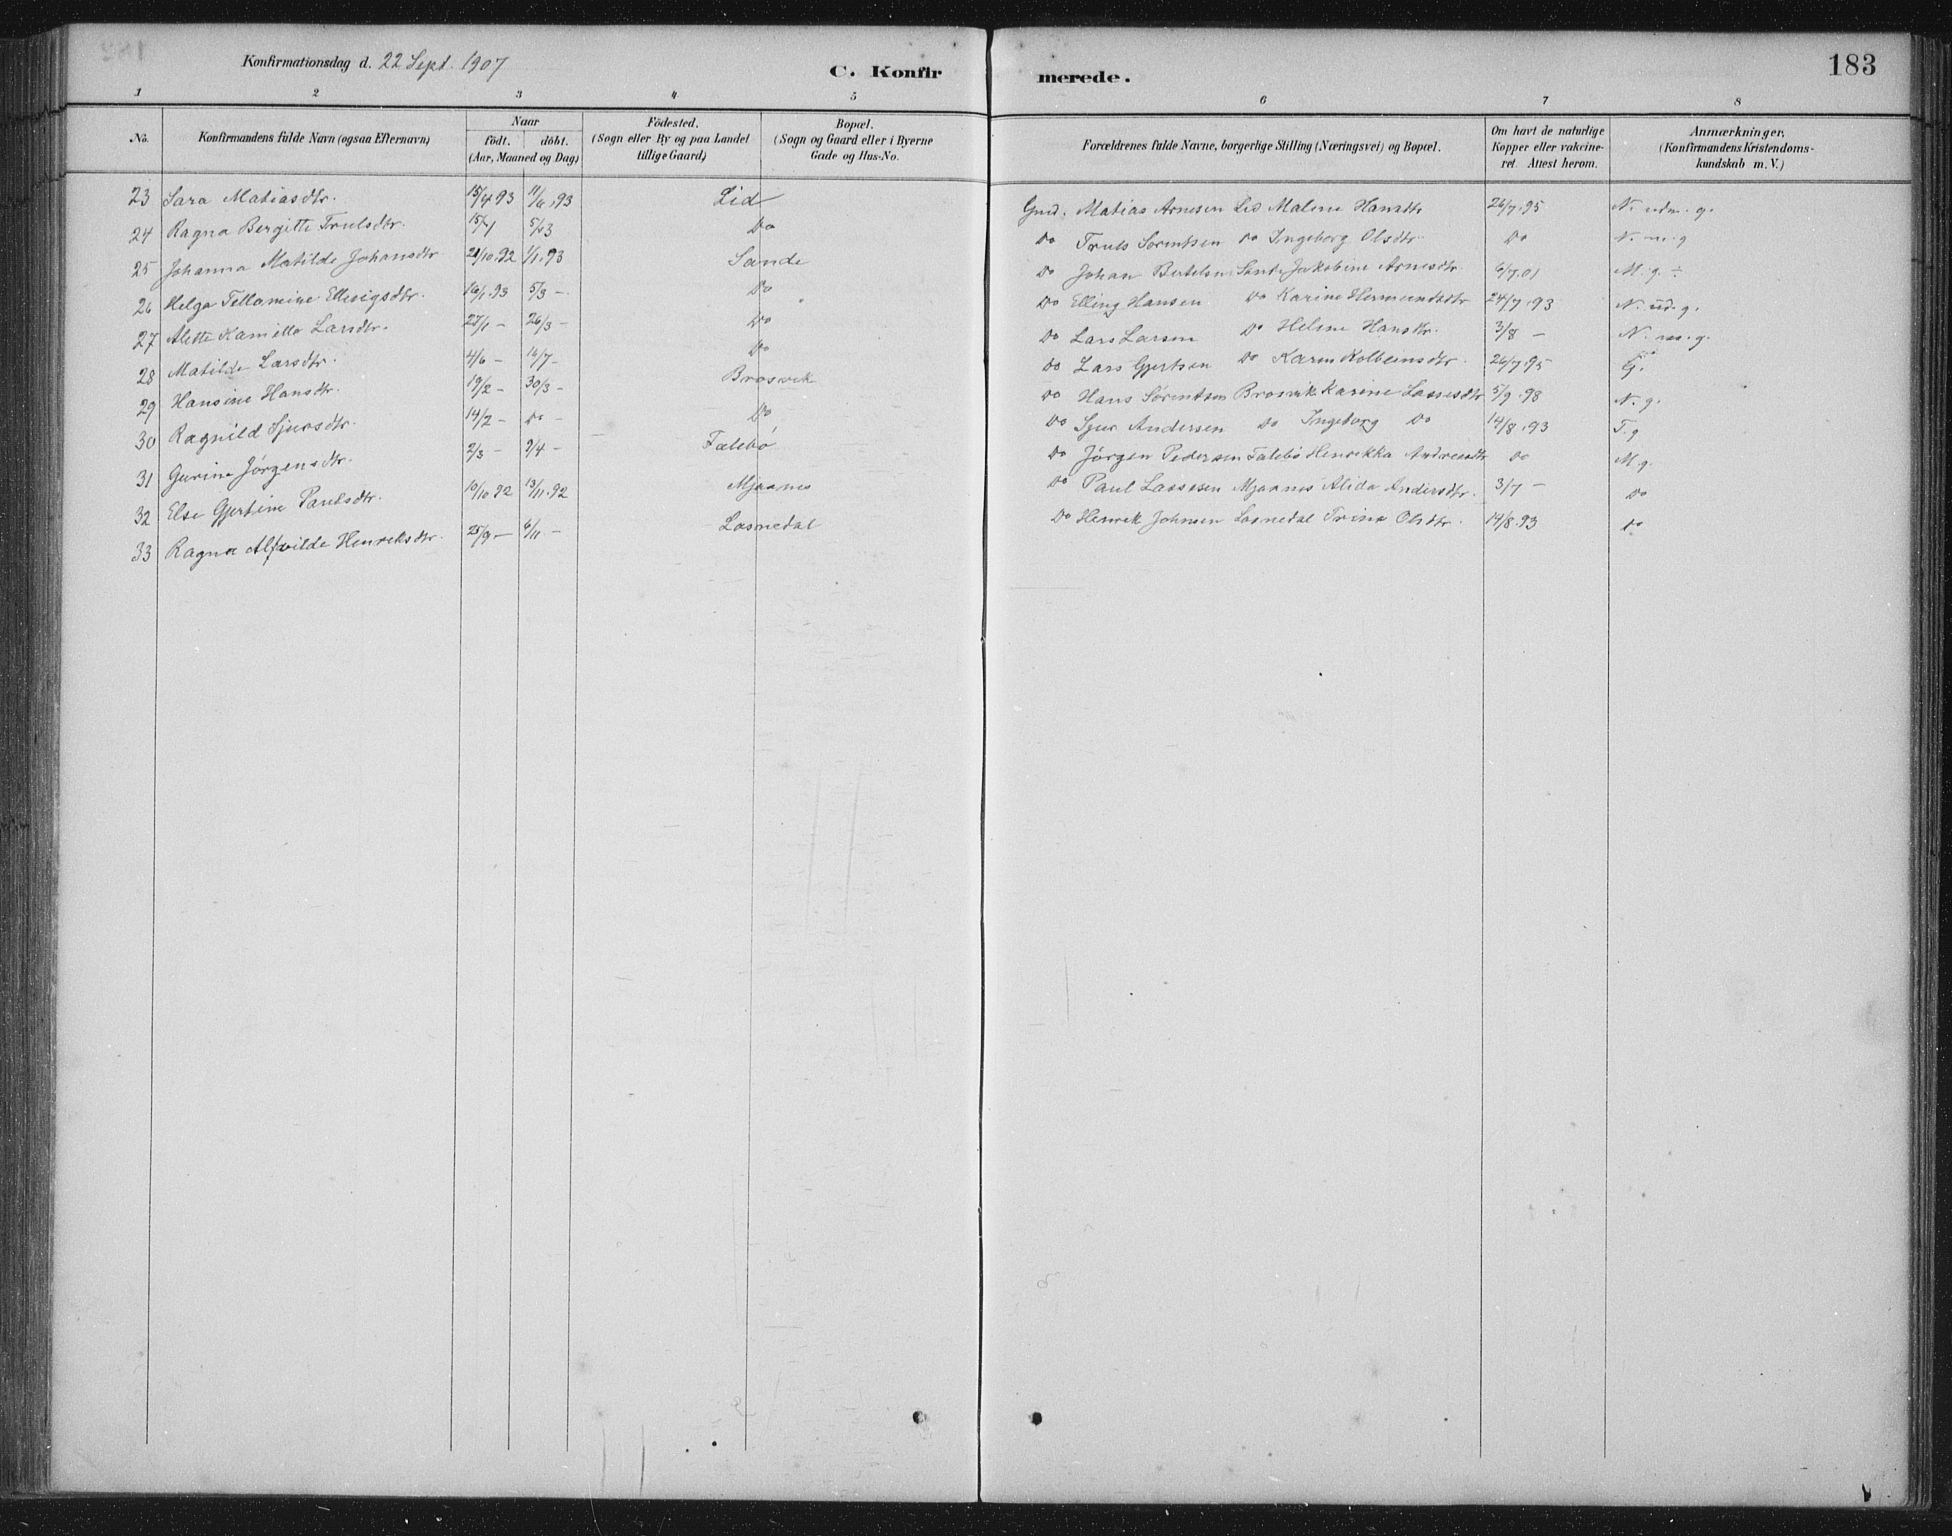 Konfirmationsdag d. 22 Sept. 1907
C. Konfirmerede.
183
1 2 3 4 5 6 7 8
No. Konfirmandens fulde Navn (ogsaa Efternavn) Naar födt. döbt. (Aar, Maaned og Dag) Födested. (Sogn eller By og paa Landet tillige Gaard) Bopæl. (Sogn og Gaard eller i Byerne Gade og Hus-No. Forældrenes fulde Navne, borgerlige Stilling (Næringsvei) og Bopæl. Om havt de naturlige Kopper eller vakcineret. Attest herom. Anmærkninger, (Konfirmandens Kristendomskundskab m. V.)
23 Sara Matiasdtr. 15/4 93 11/6.93 Lid Gmd. Matias Arnesen Lid Malene Hansdtr 26/7.95 N. udm. g.
24 Ragna Bergitte Trulsdtr. 15/1 5/3 Do Do Truls Sorentsen Do Ingeborg Olsdtr. Do N. m. g
25 Johanna Matilde Johansdtr 21/10.92 1/1.93 Sande Do Johan Bertelsen Sande Jakobine Arnesdtr. 6/7.01 M. g. ÷
26 Helga Tellomine Ellesigsdtr. 16/1.93 5/3 - Do Do Elling Hansen Do Karine Hermundsdtr 24/7.93 N. ud. g.
27 Alette Kamilla Larsdtr. 27/1 - 26/3 - Do Do Lars Larsen Do Helene Hansdtr. 3/8 - N. m. g.
28 Matilde Larsdtr. 4/6 - 16/7 - Do Do Lars Gjertsen Do Karen Kolbeinsdtr. 26/7.95 G.
29 Hansine Hansdtr. 19/2 - 30/3 - Brosvik Do Hans Sørentsen Brosvik Karine Lassesdtr 5/9.98 N. g.
30 Ragnild Sjursdtr. 14/2 - Do - Do Do Sjur Andersen Do Ingeborg Do 14/8.93 T. g
31 Gurine Jörgensdtr. 2/3 - 2/4 - Falebö Do Jörgen Pedersen Falebö Henrikka Andreasdtr Do M g.
32 Else Gjertine Paulsdtr. 10/10.92 13/11.92 Mjaanes Do Paul Lassesen Mjaanes Alida Andersdtr. 3/7 - Do
33 Ragna Alfvilde Henriksdtr. 25/9 - 6/11 - Losnedal Do Henrik Johnsen Losnedal Trina Olsdtr. 14/8.93 Do